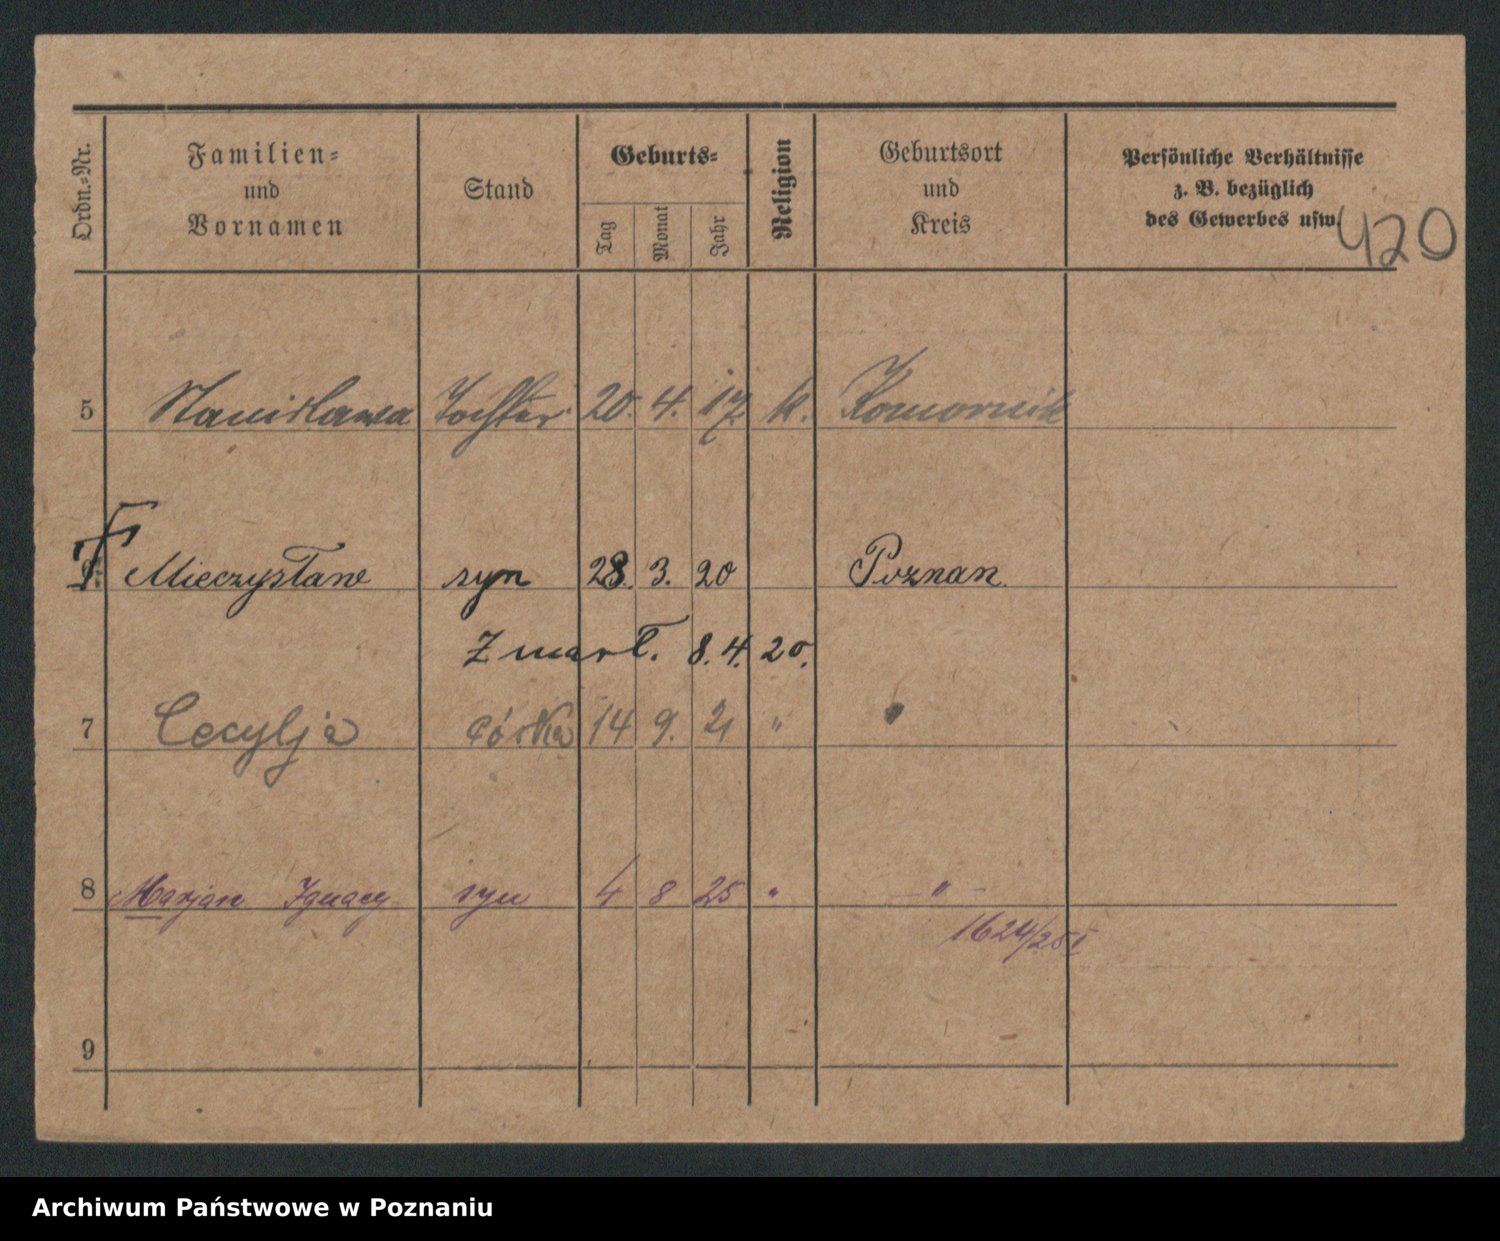 Ordn.-Nr.
Familien-
und
Vornamen
Stand
Geburts-
Tag
Monat
Jahr
Religion
Geburtsort
und
Kreis
Persönliche Verhältnisse
z. B. bezüglich
des Gewerbes usw.
420
5 Stanislawa Tochter 20. 4. 17. k. Komornik
Mieczysław syn 28. 3. 20 Poznan.
Zmarł. 8. 4. 20.
7 Cecylja córka 14 9. 21 "
8 Marjan Ignacy syn 4 8 25 " - " -
1624/25
9
Archiwum Państwowe w Poznaniu